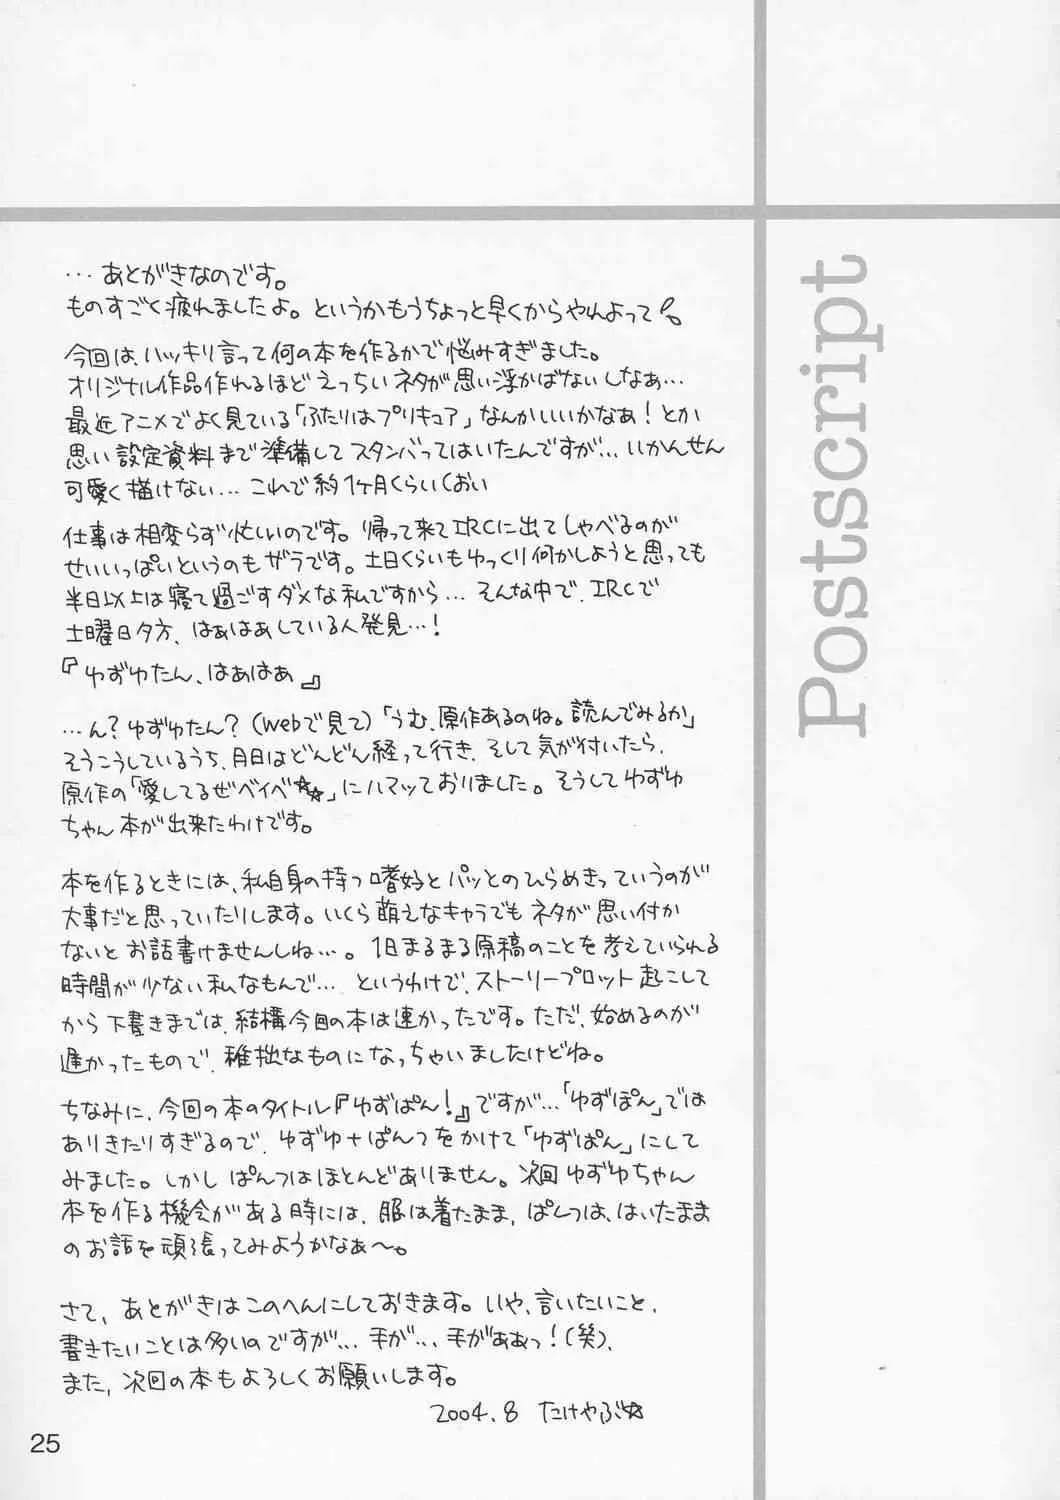 …あとがきなのです。
ものすごく疲れましたよ。というかもうちょっと早くからやれよって
今回は、ハッキリ言って何の本を作るかで悩みすぎました。
オリジナル作品作れるほどえっちいネタが思い浮かばないしなぁ…
最近アニメでよく見ている「ふたりはプリキュア」なんかいいかなぁ!とか
思い設定資料まで準備してスタンバってはいたんですが…いかんせん
可愛く描けない…これで約1ヶ月くらい(おい
仕事は相変らず忙しいのです。帰って来てIRCに出てしゃべるのが
せいいっぱいというのもザラです。土日くらいもゆっくり何かしようと思っても
半日以上は寝て過ごすダメな私ですから…そんな中で、IRCで
土曜日夕方、はぁはぁしている人発見…!
『ゆずゆたん、はぁはぁ』
…ん?ゆずゆたん?(Webで見て)「うむ、原作あるのね。読んでみるか」
そうこうしているうち、月日はどんどん経って行き、そして気が付いたら、
原作の「愛してるぜベイベ☆☆」にハマッておりました。そうしてゆずゆ
ちゃん本が出来たわけです。
本を作るときには、私自身の持つ嗜好とパッとのひらめきっていうのが
大事だと思っていたりします。いくら萌えなキャラでもネタが思い付か
ないとお話書けませんしね…。1日まるまる原稿のことを考えていられる
時間が少ない私なもんで…というわけで、ストーリープロット起こして
から下書きまでは、結構今回の本は速かったです。ただ、始めるのが
遅かったもので、稚拙なものになっちゃいましたけどね。
ちなみに、今回の本のタイトル『ゆずぱん!』ですが…「ゆずぽん」では
ありきたりすぎるので、ゆずゆ+ぱんつをかけて「ゆずぱん」にして
みました。しかしぱんつはほとんどありません。次回ゆずゆちゃん
本を作る機会がある時には、服は着たまま、ぱんつは、はいたまま
のお話を頑張ってみようかなぁ〜。
さて、あとがきはこのへんにしておきます。いや、言いたいこと、
書きたいことは多いのですが…手が…手がぁぁっ!(笑)、
また、次回の本もよろしくお願いします。
2004.8 たけやぶ☆
Postscript
25